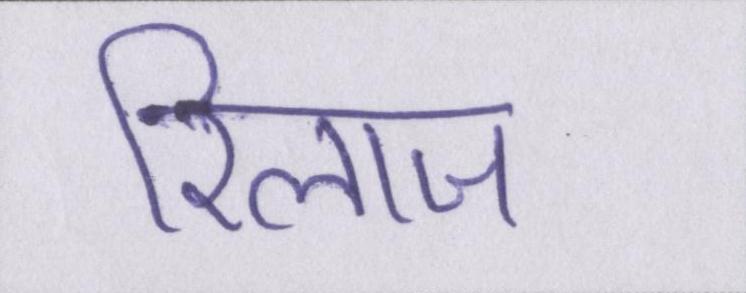 रिलाज